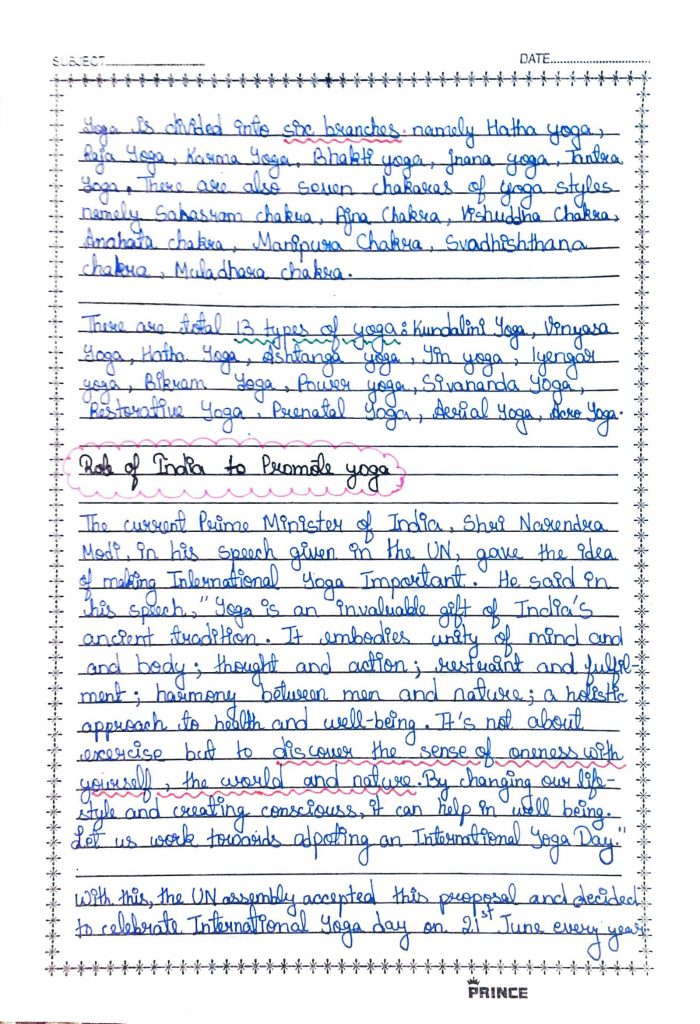 SUBJECT
DATE
Yoga is divided into six branches. namely Hatha yoga,
Raja Yoga, Karma Yoga, Bhakti yoga, Jnana yoga, Tantra
Yoga. There are also seven chakaras of yoga styles
namely Sahasram chakra, Ajna Chakra, Vishuddha Chakra,
Anahata chakra, Manipura Chakra, Svadhishthana
chakra, Muladhara chakra.
There are total 13 types of yoga: Kundalini Yoga, Vinyasa
Yoga, Hatha Yoga, Ashtanga yoga, Yin yoga, Iyengar
yoga, Bikram Yoga, Power yoga, Sivananda Yoga,
Restorative Yoga, Prenatal Yoga, Aerial Yoga, Acro Yoga.
Role of India to Promote yoga
The current Prime Minister of India, Shri Narendra
Modi, in his speech given in the UN, gave the idea
of making International Yoga Important. He said in
his speech, "Yoga is an invaluable gift of India's
ancient tradition. It embodies unity of mind and
and body; thought and action; restraint and fulfil-
ment; harmony between men and nature; a holistic
approach to health and well-being. It's not about
exercise but to discover the sense of oneness with
yourself, the world and nature. By changing our life-
style and creating consciouss, it can help in well being.
Let us work towards adpoting an International Yoga Day."
With this, the UN assembly accepted this proposal and decided
to celebrate International Yoga day on 21st June every year
PRINCE